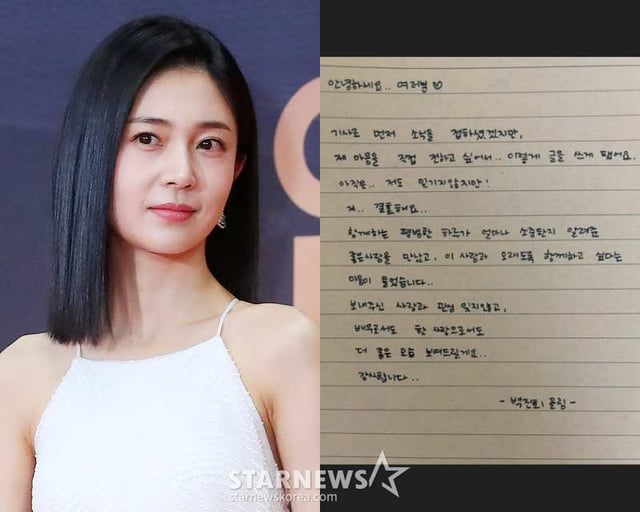 안녕하세요.. 여러분 ♡
기사로 먼저 소식을 접하셨겠지만,
제 마음을 직접 전하고 싶어서.. 이렇게 글을 쓰게 됐어요.
아직은.. 저도 믿기지않지만!
저.. 결혼해요..
함께하는 평범한 하루가 얼마나 소중한지 알려준
좋은사람을 만나고, 이 사람과 오래도록 함께하고 싶다는
마음이 들었습니다..
보내주신 사랑과 관심 잊지않고,
배우로서도 한 사람으로서도
더 좋은 모습 보여드릴게요..
감사합니다..
- 백진희 올림 -
STARNEWS
starnewskorea.com